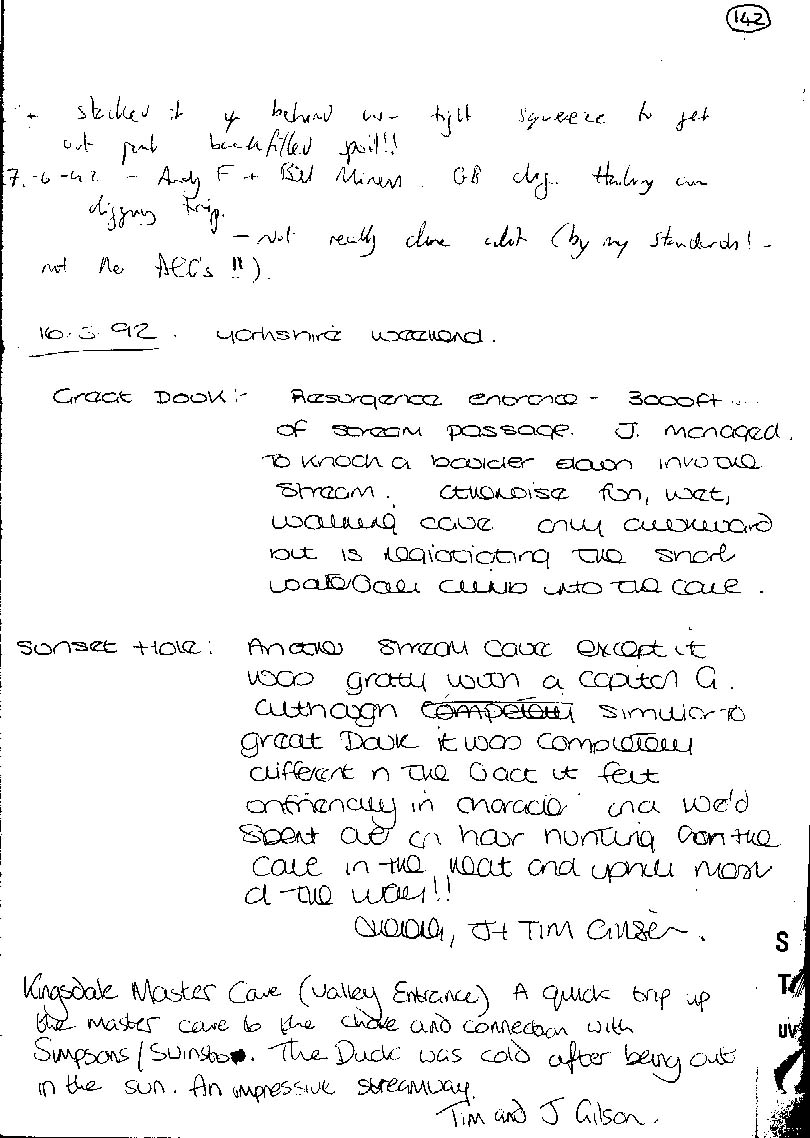 142
+ stacked it up behind us - tight squeeze to get
out past backfilled spoil!!
7.-6-92 - Andy F + Bill Miners. GB dig. Hauling
digging trip.
- Not really done alot (by my standards! -
not the AEC's !!).
16.5.92. Yorkshire weekend.
Great Douk:- Resurgence entrance - 3000ft
of stream passage. J. managed
to knock a boulder down into the
stream. Otherwise fun, wet,
walking cave only awkward
bit is negiotiating the short
waterfall climb into the cave.
Sunset Hole: Another stream cave except it
was grotty with a capital G.
Although completely similiar to
great Douk it was completely
different in the fact it felt
unfriendly in character and we'd
spent an hour hunting for the
cave in the heat and uphill most
of the way!!
J + Tim Gilson.
Kingsdale Master Cave (Valley Entrance) A quick trip up
the master cave to the choke and connection with
Simpsons/Swinsto. The Duck was cold after being out
in the sun. An impressive streamway.
Tim and J Gilson.
S
T
UV